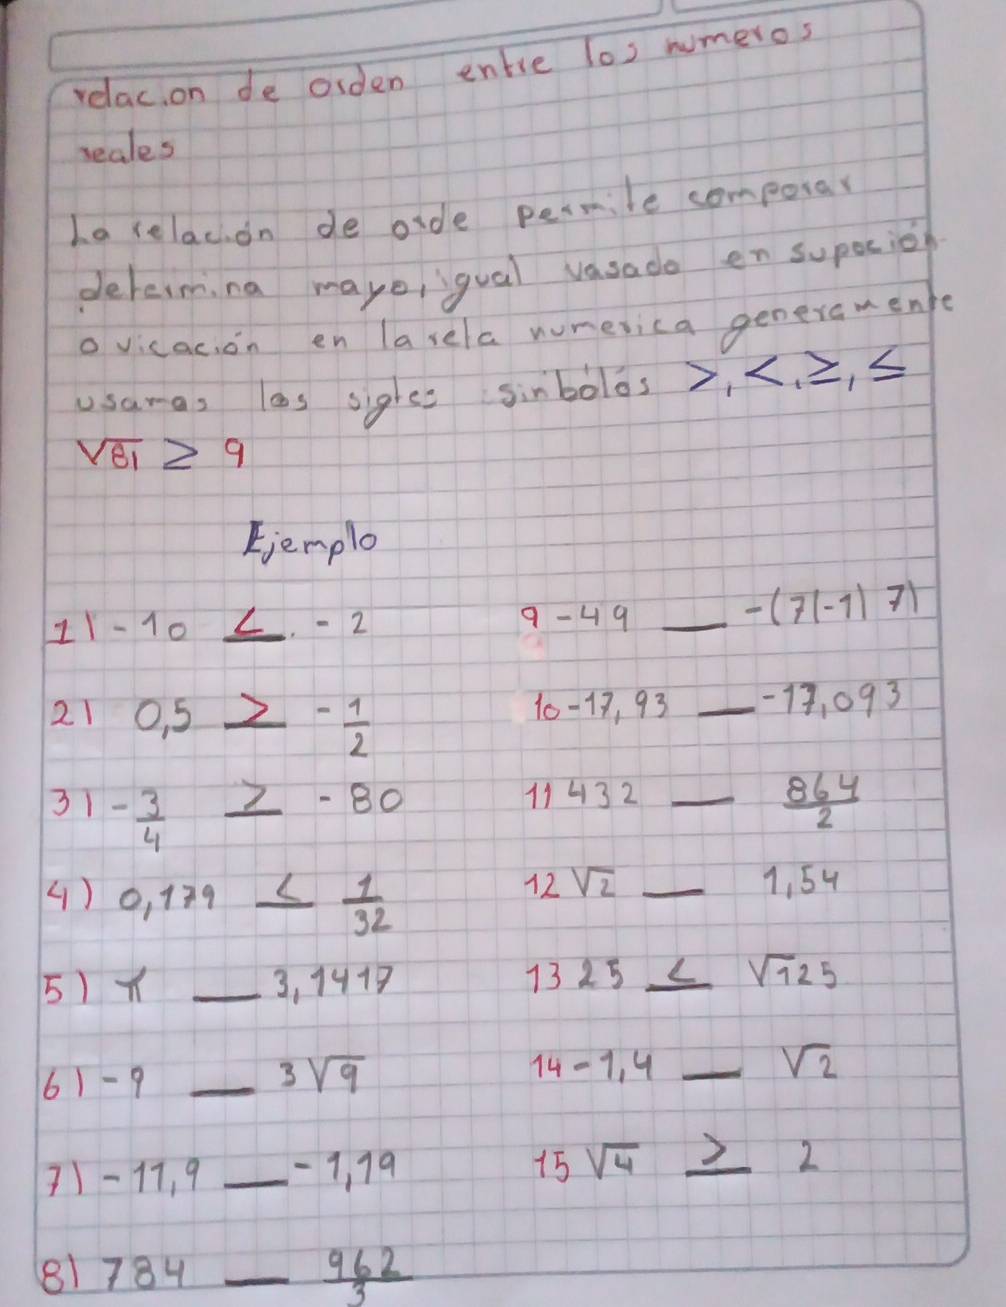 relacion de orden entre los numeros
reales
La relación de orde permite comporar
determina mayo, igual vasado en suposición
o vicación en la rela numerica generamente
usamos los sigtes sinbolós >, <, ≥, ≤
√81 ≥ 9
Ejemplo
1) -10 < . -2
2) 0,5 > -1/2
3) -3/4 ≥ -80
4) 0,179 ≤ 1/32
5) π __ 3,1417
6) -9 __ 3√9
7) -11,9 __ -1,19
8) 784 __ 962/3
9 -49 __ -(7(-1) 7)
10 -17,93 __ -17,093
11 432 __ 864/2
12 √2 __ 1,54
13 25 ≤ √125
14 -1,4 __ √2
15 √4 ≥ 2